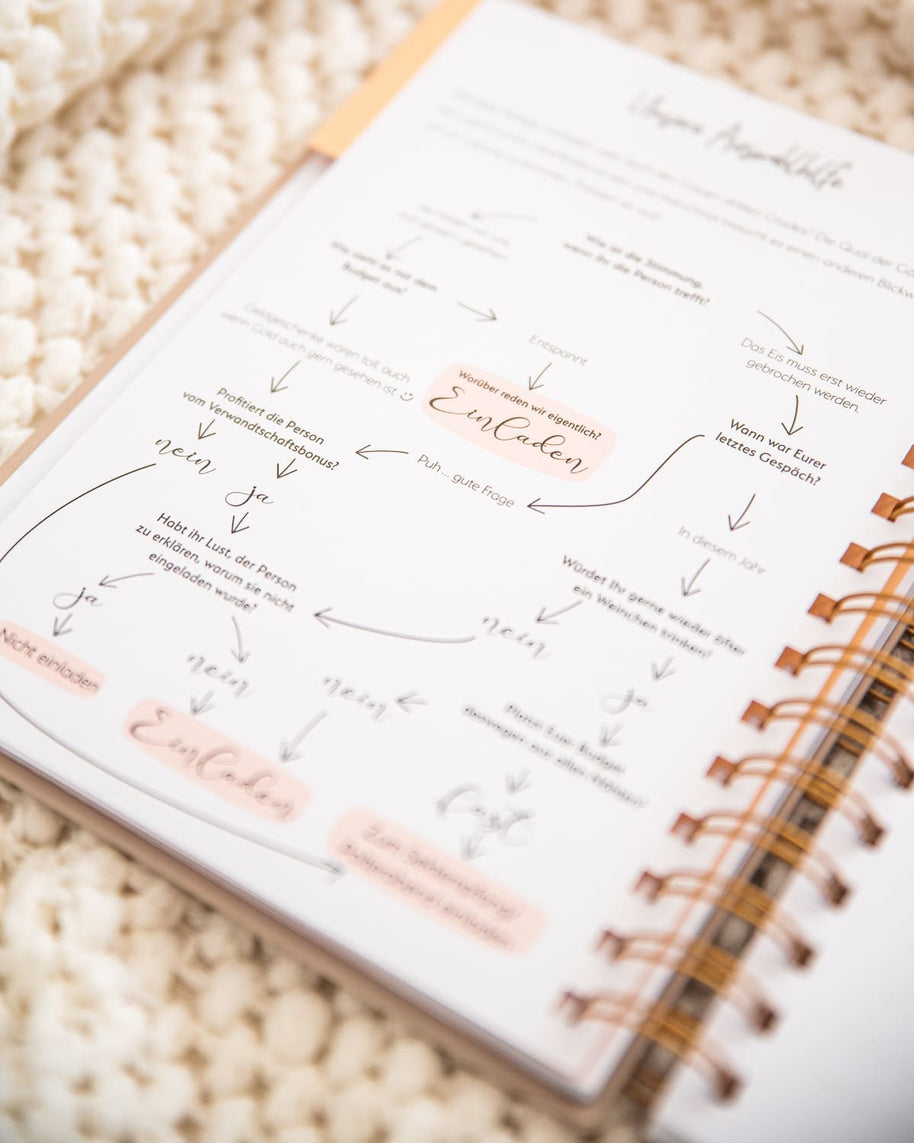 Unsere Auswahlhilfe
Wie ist die Stimmung,
wenn Ihr die Person trefft?
Wie sieht es mit dem
Budget aus?
Entspannt
Das Eis muss erst wieder
gebrochen werden.
Geldgeschenke wären toll, auch
wenn Gold auch gern gesehen ist.
Worüber reden wir eigentlich?
Einladen
Wann war Eurer
letztes Gespräch?
Profitiert die Person
vom Verwandtschaftsbonus?
Puh ... gute Frage
nein
ja
In diesem Jahr
Habt ihr Lust, der Person
zu erklären, warum sie nicht
eingeladen wurde?
Würdet Ihr gerne wieder öfter
ein Weinchen trinken?
ja
nein
Nicht einladen
nein
nein
ja
Platzt Euer Budget
deswegen aus allen Nähten?
Einladen
fast